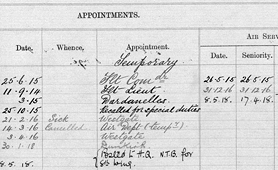 APPOINTMENTS.
AIR SERV
Date. Whence. Appointment. Date. Seniority.
Temporary
25-6-15 Flt Comdr 21-5-15 26-5-15
11-9-14 Flt Lieut 31-12-16 31-12-16
3-15 Dardanelles 8.5.18. 17.4.18
25.10.15 Recalled for special duties
21-2-16 Sick Westgate
14-3-16 Cancelled Air Dept (temp)
3-4-16 Westgate
30-1-18 Dunkirk
8.5.18. H.Q. N.T.B. for
Wing.